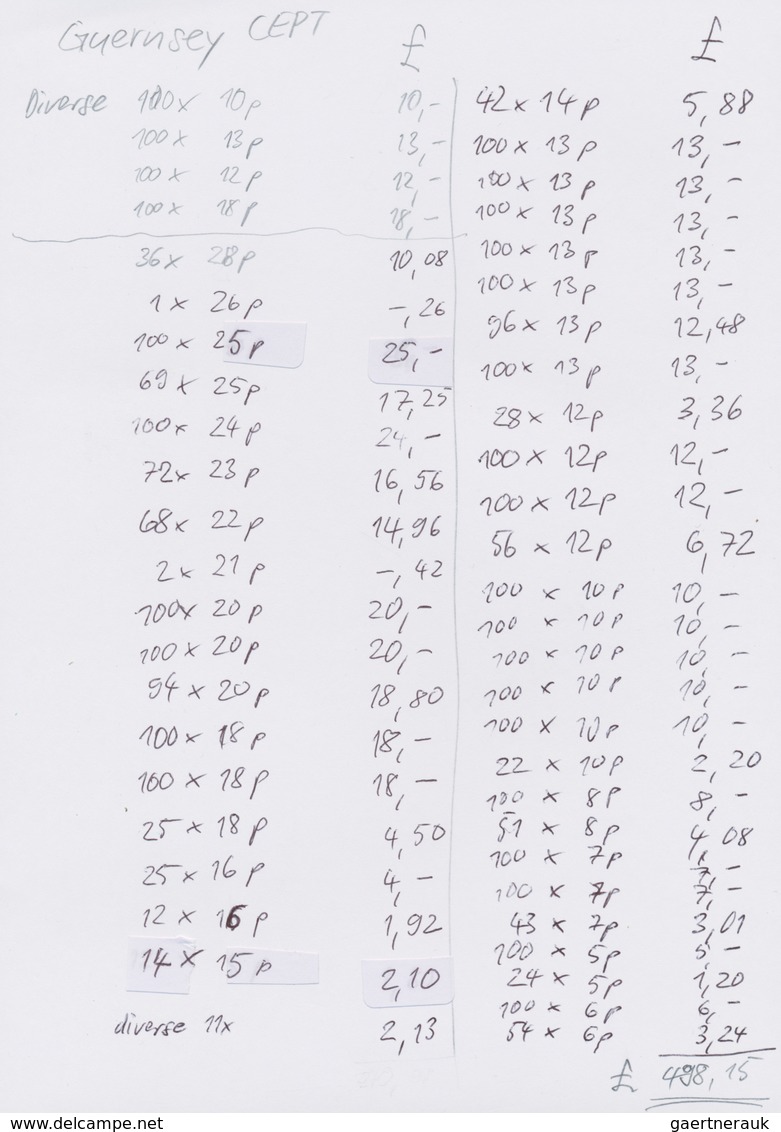 Guernsey CEPT
£
Diverse 100 x 10p 10,-
100 x 13p 13,-
100 x 12p 12,-
100 x 18p 18,-
36 x 28p 10,08
1 x 26p -,26
100 x 25p 25,-
69 x 25p 17,25
100 x 24p 24,-
72 x 23p 16,56
68 x 22p 14,96
2 x 21p -,42
100 x 20p 20,-
100 x 20p 20,-
94 x 20p 18,80
100 x 18p 18,-
100 x 18p 18,-
25 x 18p 4,50
25 x 16p 4,-
12 x 16p 1,92
14 x 15p 2,10
diverse 11x 2,13
£
42 x 14p 5,88
100 x 13p 13,-
100 x 13p 13,-
100 x 13p 13,-
100 x 13p 13,-
100 x 13p 13,-
96 x 13p 12,48
100 x 13p 13,-
28 x 12p 3,36
100 x 12p 12,-
100 x 12p 12,-
56 x 12p 6,72
100 x 10p 10,-
100 x 10p 10,-
100 x 10p 10,-
100 x 10p 10,-
100 x 10p 10,-
22 x 10p 2,20
100 x 8p 8,-
51 x 8p 4,08
100 x 7p 7,-
100 x 7p 7,-
43 x 7p 3,01
100 x 5p 5-
24 x 5p 1,20
100 x 6p 6,-
54 x 6p 3,24
£ 498,15
www.delcampe.net
gaertnerauk